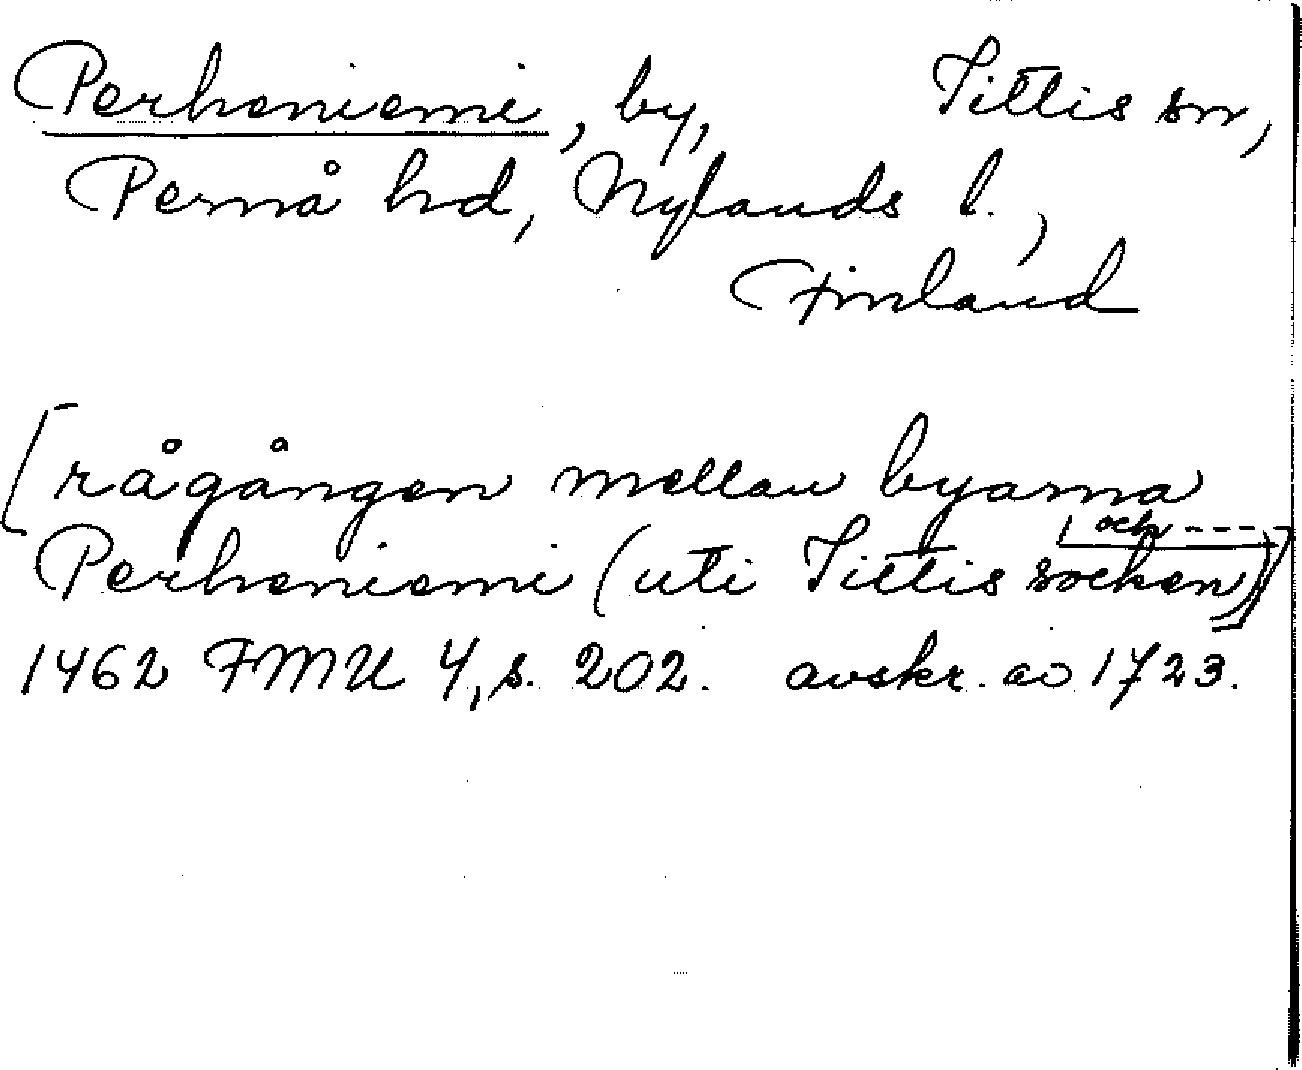 Perheniemi, by, Tittis sn,
Pernå hd, Nylands l.,
Finland
[rågången mellan byarna
Perheniemi (uti Tittis socken) och ----]
1462 FMU 4, s. 202. avskr. av 1723.